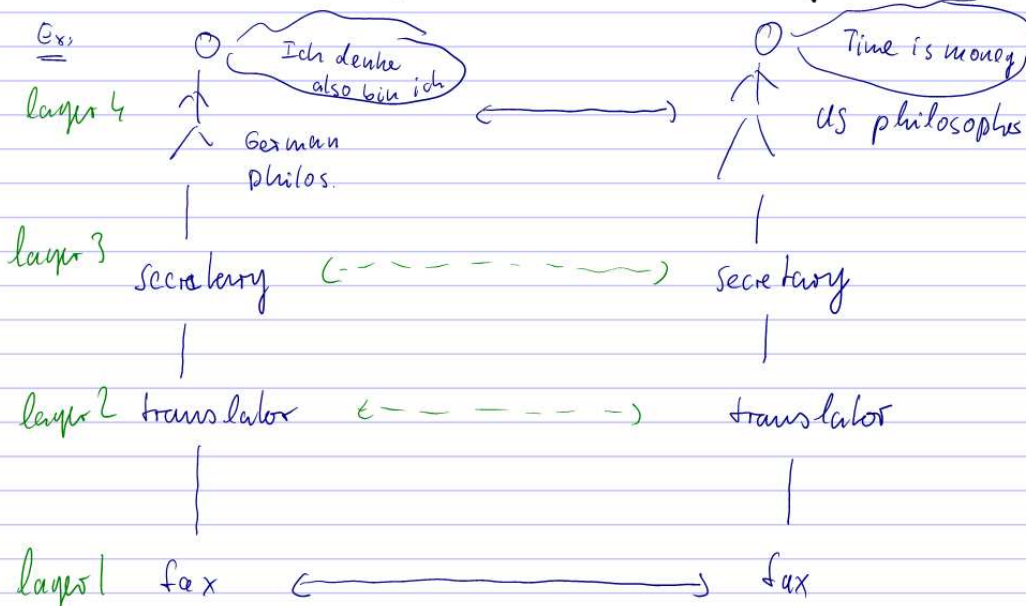 Ex,
Ich denke
also bin ich
Time is money
layer 4
German
philos.
US philosophes
layer 3
secretary
secretary
layer 2
translator
translator
layer 1
fax
fax